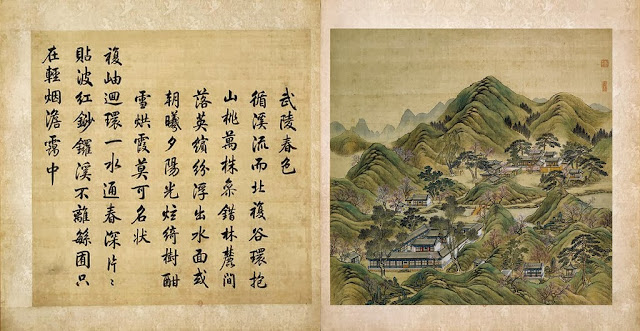 武陵春色
循溪流而北複谷環抱
山桃萬株叅錯林麓間
落英繽紛浮出水面或
朝曦夕陽光炫綺樹酣
雪烘霞莫可名狀
複岫迴環一水通春深片〻
貼波紅鈔鑼溪不離繇囿只
在輕烟澹靄中